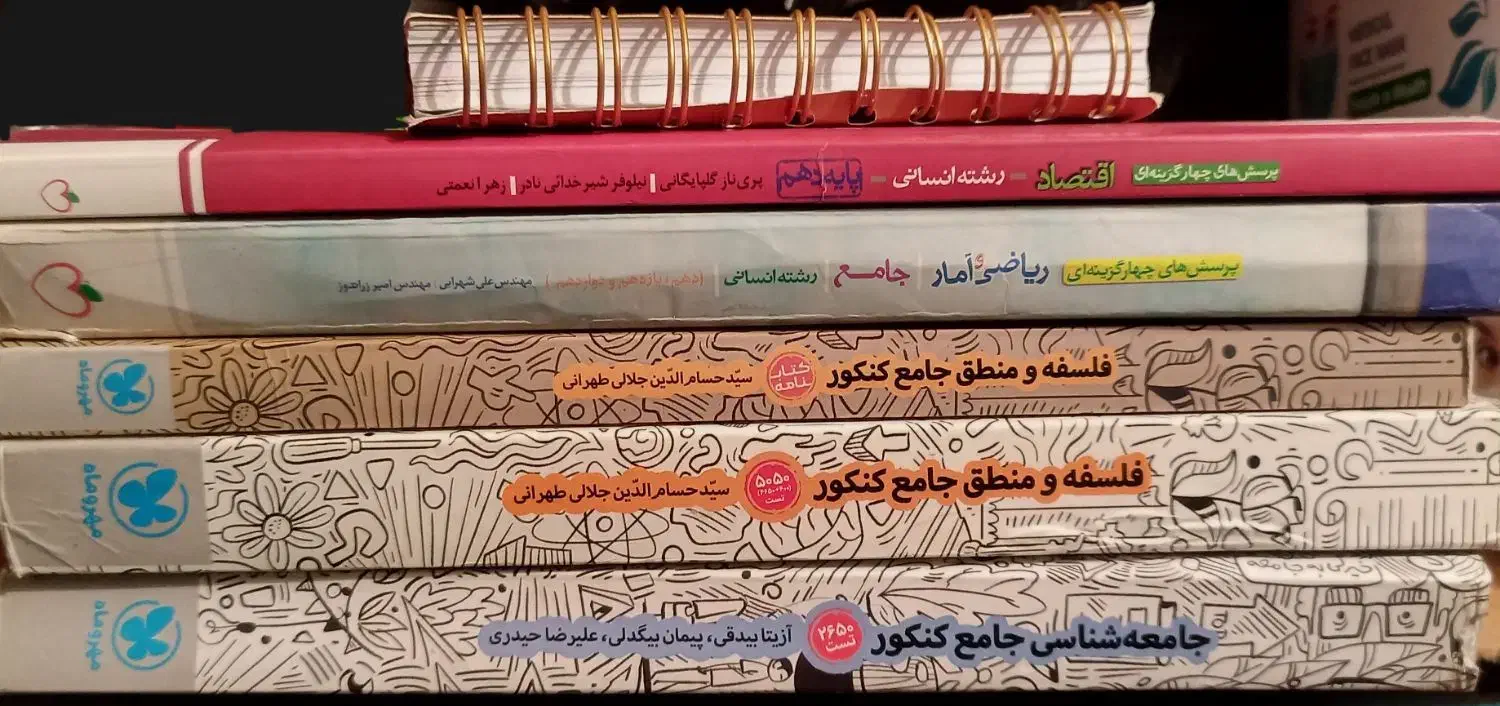 پرسش‌های چهارگزینه‌ای اقتصاد - رشته انسانی - پایه دهم پری‌ناز گلپایگانی | نیلوفر شیرخدائی نادر | زهرا نعمتی
پرسش‌های چهارگزینه‌ای ریاضی و آمار | جامع | رشته انسانی | (دهم، یازدهم و دوازدهم) | مهندس علی شهرابی | مهندس امیر زراندوز
فلسفه و منطق جامع کنکور کتاب‌نامه سیّد حسام‌الدّین جلالی طهرانی مهروماه
فلسفه و منطق جامع کنکور ۵۰۵۰ تست سیّد حسام‌الدّین جلالی طهرانی مهروماه
جامعه‌شناسی جامع کنکور ۲۶۵۰ تست آزیتا بیدقی، پیمان بیگدلی، علیرضا حیدری مهروماه